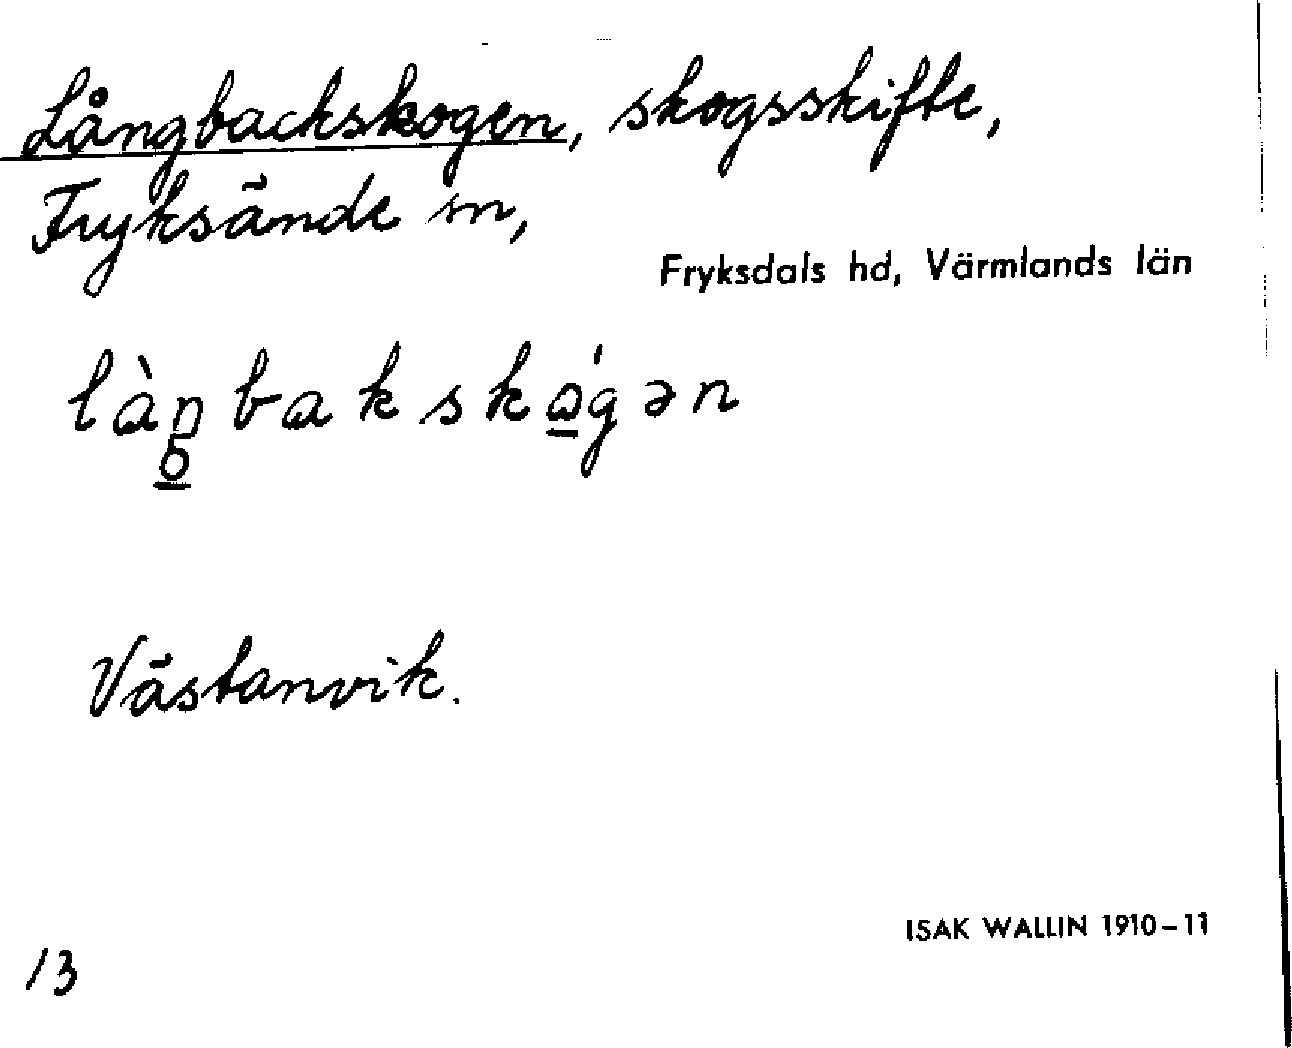 Långbackskogen, skogsskifte,
Fryksände sn,
Fryksdals hd, Värmlands län
Västanvik.
ISAK WALLIN 1910–11
13